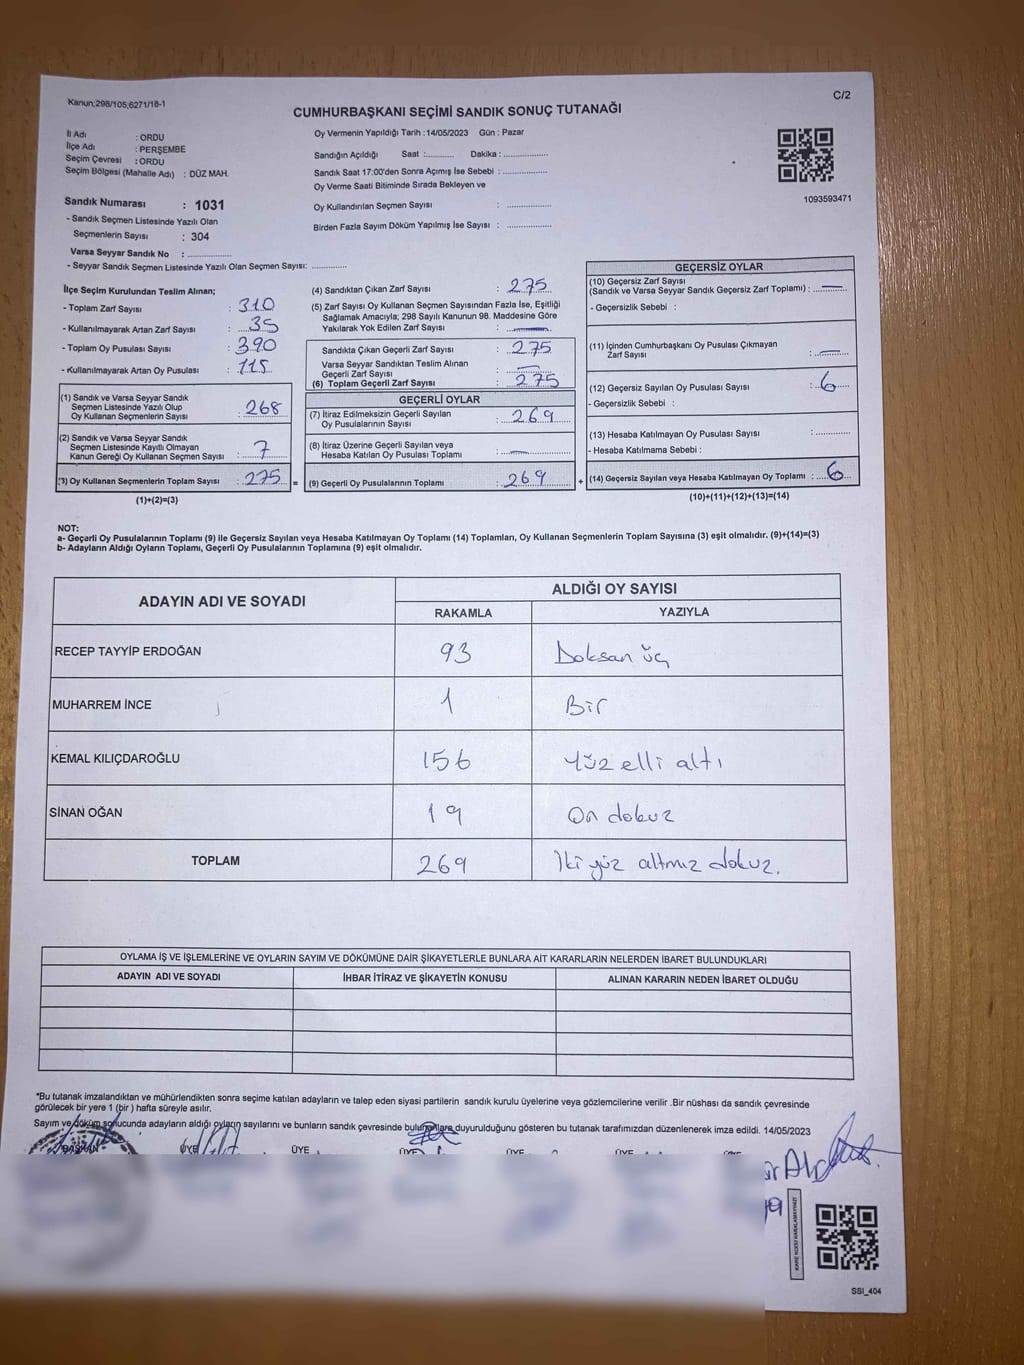 Kanun;298/105;6271/18-1
C/2
CUMHURBAŞKANI SEÇİMİ SANDIK SONUÇ TUTANAĞI
İl Adı : ORDU
İlçe Adı : PERŞEMBE
Seçim Çevresi : ORDU
Seçim Bölgesi (Mahalle Adı) : DÜZ MAH.
Sandık Numarası : 1031
- Sandık Seçmen Listesinde Yazılı Olan
Seçmenlerin Sayısı : 304
Varsa Seyyar Sandık No : ..............
- Seyyar Sandık Seçmen Listesinde Yazılı Olan Seçmen Sayısı: ............
Oy Vermenin Yapıldığı Tarih :14/05/2023 Gün : Pazar
Sandığın Açıldığı Saat :.......... Dakika : ...............
Sandık Saat 17:00'den Sonra Açımış İse Sebebi : ...............
Oy Verme Saati Bitiminde Sırada Bekleyen ve
Oy Kullandırılan Seçmen Sayısı : ...............
Birden Fazla Sayım Döküm Yapılmış İse Sayısı : ...............
1093593471
İlçe Seçim Kurulundan Teslim Alınan;
- Toplam Zarf Sayısı : 310
- Kullanılmayarak Artan Zarf Sayısı : 35
- Toplam Oy Pusulası Sayısı : 390
- Kullanılmayarak Artan Oy Pusulası : 115
(1) Sandık ve Varsa Seyyar Sandık
Seçmen Listesinde Yazılı Olup
Oy Kullanan Seçmenlerin Sayısı : 268
(2) Sandık ve Varsa Seyyar Sandık
Seçmen Listesinde Kayıtlı Olmayan
Kanun Gereği Oy Kullanan Seçmen Sayısı : 7
(3) Oy Kullanan Seçmenlerin Toplam Sayısı : 275 =
(1)+(2)=(3)
(4) Sandıktan Çıkan Zarf Sayısı : 275
(5) Zarf Sayısı Oy Kullanan Seçmen Sayısından Fazla İse, Eşitliği
Sağlamak Amacıyla; 298 Sayılı Kanunun 98. Maddesine Göre
Yakılarak Yok Edilen Zarf Sayısı : —
Sandıkta Çıkan Geçerli Zarf Sayısı : 275
Varsa Seyyar Sandıktan Teslim Alınan
Geçerli Zarf Sayısı : —
(6) Toplam Geçerli Zarf Sayısı : 275
GEÇERLİ OYLAR
(7) İtiraz Edilmeksizin Geçerli Sayılan
Oy Pusulalarının Sayısı : 269
(8) İtiraz Üzerine Geçerli Sayılan veya
Hesaba Katılan Oy Pusulası Toplamı : —
(9) Geçerli Oy Pusulalarının Toplamı : 269 +
GEÇERSİZ OYLAR
(10) Geçersiz Zarf Sayısı
(Sandık ve Varsa Seyyar Sandık Geçersiz Zarf Toplamı) : —
- Geçersizlik Sebebi :
(11) İçinden Cumhurbaşkanı Oy Pusulası Çıkmayan
Zarf Sayısı : —
(12) Geçersiz Sayılan Oy Pusulası Sayısı : 6
- Geçersizlik Sebebi :
(13) Hesaba Katılmayan Oy Pusulası Sayısı : ............
- Hesaba Katılmama Sebebi :
(14) Geçersiz Sayılan veya Hesaba Katılmayan Oy Toplamı : 6
(10)+(11)+(12)+(13)=(14)
NOT:
a- Geçerli Oy Pusulalarının Toplamı (9) ile Geçersiz Sayılan veya Hesaba Katılmayan Oy Toplamı (14) Toplamları, Oy Kullanan Seçmenlerin Toplam Sayısına (3) eşit olmalıdır. (9)+(14)=(3)
b- Adayların Aldığı Oyların Toplamı, Geçerli Oy Pusulalarının Toplamına (9) eşit olmalıdır.
ADAYIN ADI VE SOYADI
ALDIĞI OY SAYISI
RAKAMLA YAZIYLA
RECEP TAYYİP ERDOĞAN 93 Doksan üç
MUHARREM İNCE 1 Bir
KEMAL KILIÇDAROĞLU 156 Yüz elli altı
SİNAN OĞAN 19 On dokuz
TOPLAM 269 İki yüz altmız dokuz.
OYLAMA İŞ VE İŞLEMLERİNE VE OYLARIN SAYIM VE DÖKÜMÜNE DAİR ŞİKAYETLERLE BUNLARA AİT KARARLARIN NELERDEN İBARET BULUNDUKLARI
ADAYIN ADI VE SOYADI İHBAR İTİRAZ VE ŞİKAYETİN KONUSU ALINAN KARARIN NEDEN İBARET OLDUĞU
*Bu tutanak imzalandıktan ve mühürlendikten sonra seçime katılan adayların ve talep eden siyasi partilerin sandık kurulu üyelerine veya gözlemcilerine verilir .Bir nüshası da sandık çevresinde
görülecek bir yere 1 (bir ) hafta süreyle asılır.
Sayım ve döküm sonucunda adayların aldığı oyların sayılarını ve bunların sandık çevresinde bulunanlara duyurulduğunu gösteren bu tutanak tarafımızdan düzenlenerek imza edildi. 14/05/2023
BAŞKAN ÜYE ÜYE ÜYE ÜYE ÜYE
SSI_404